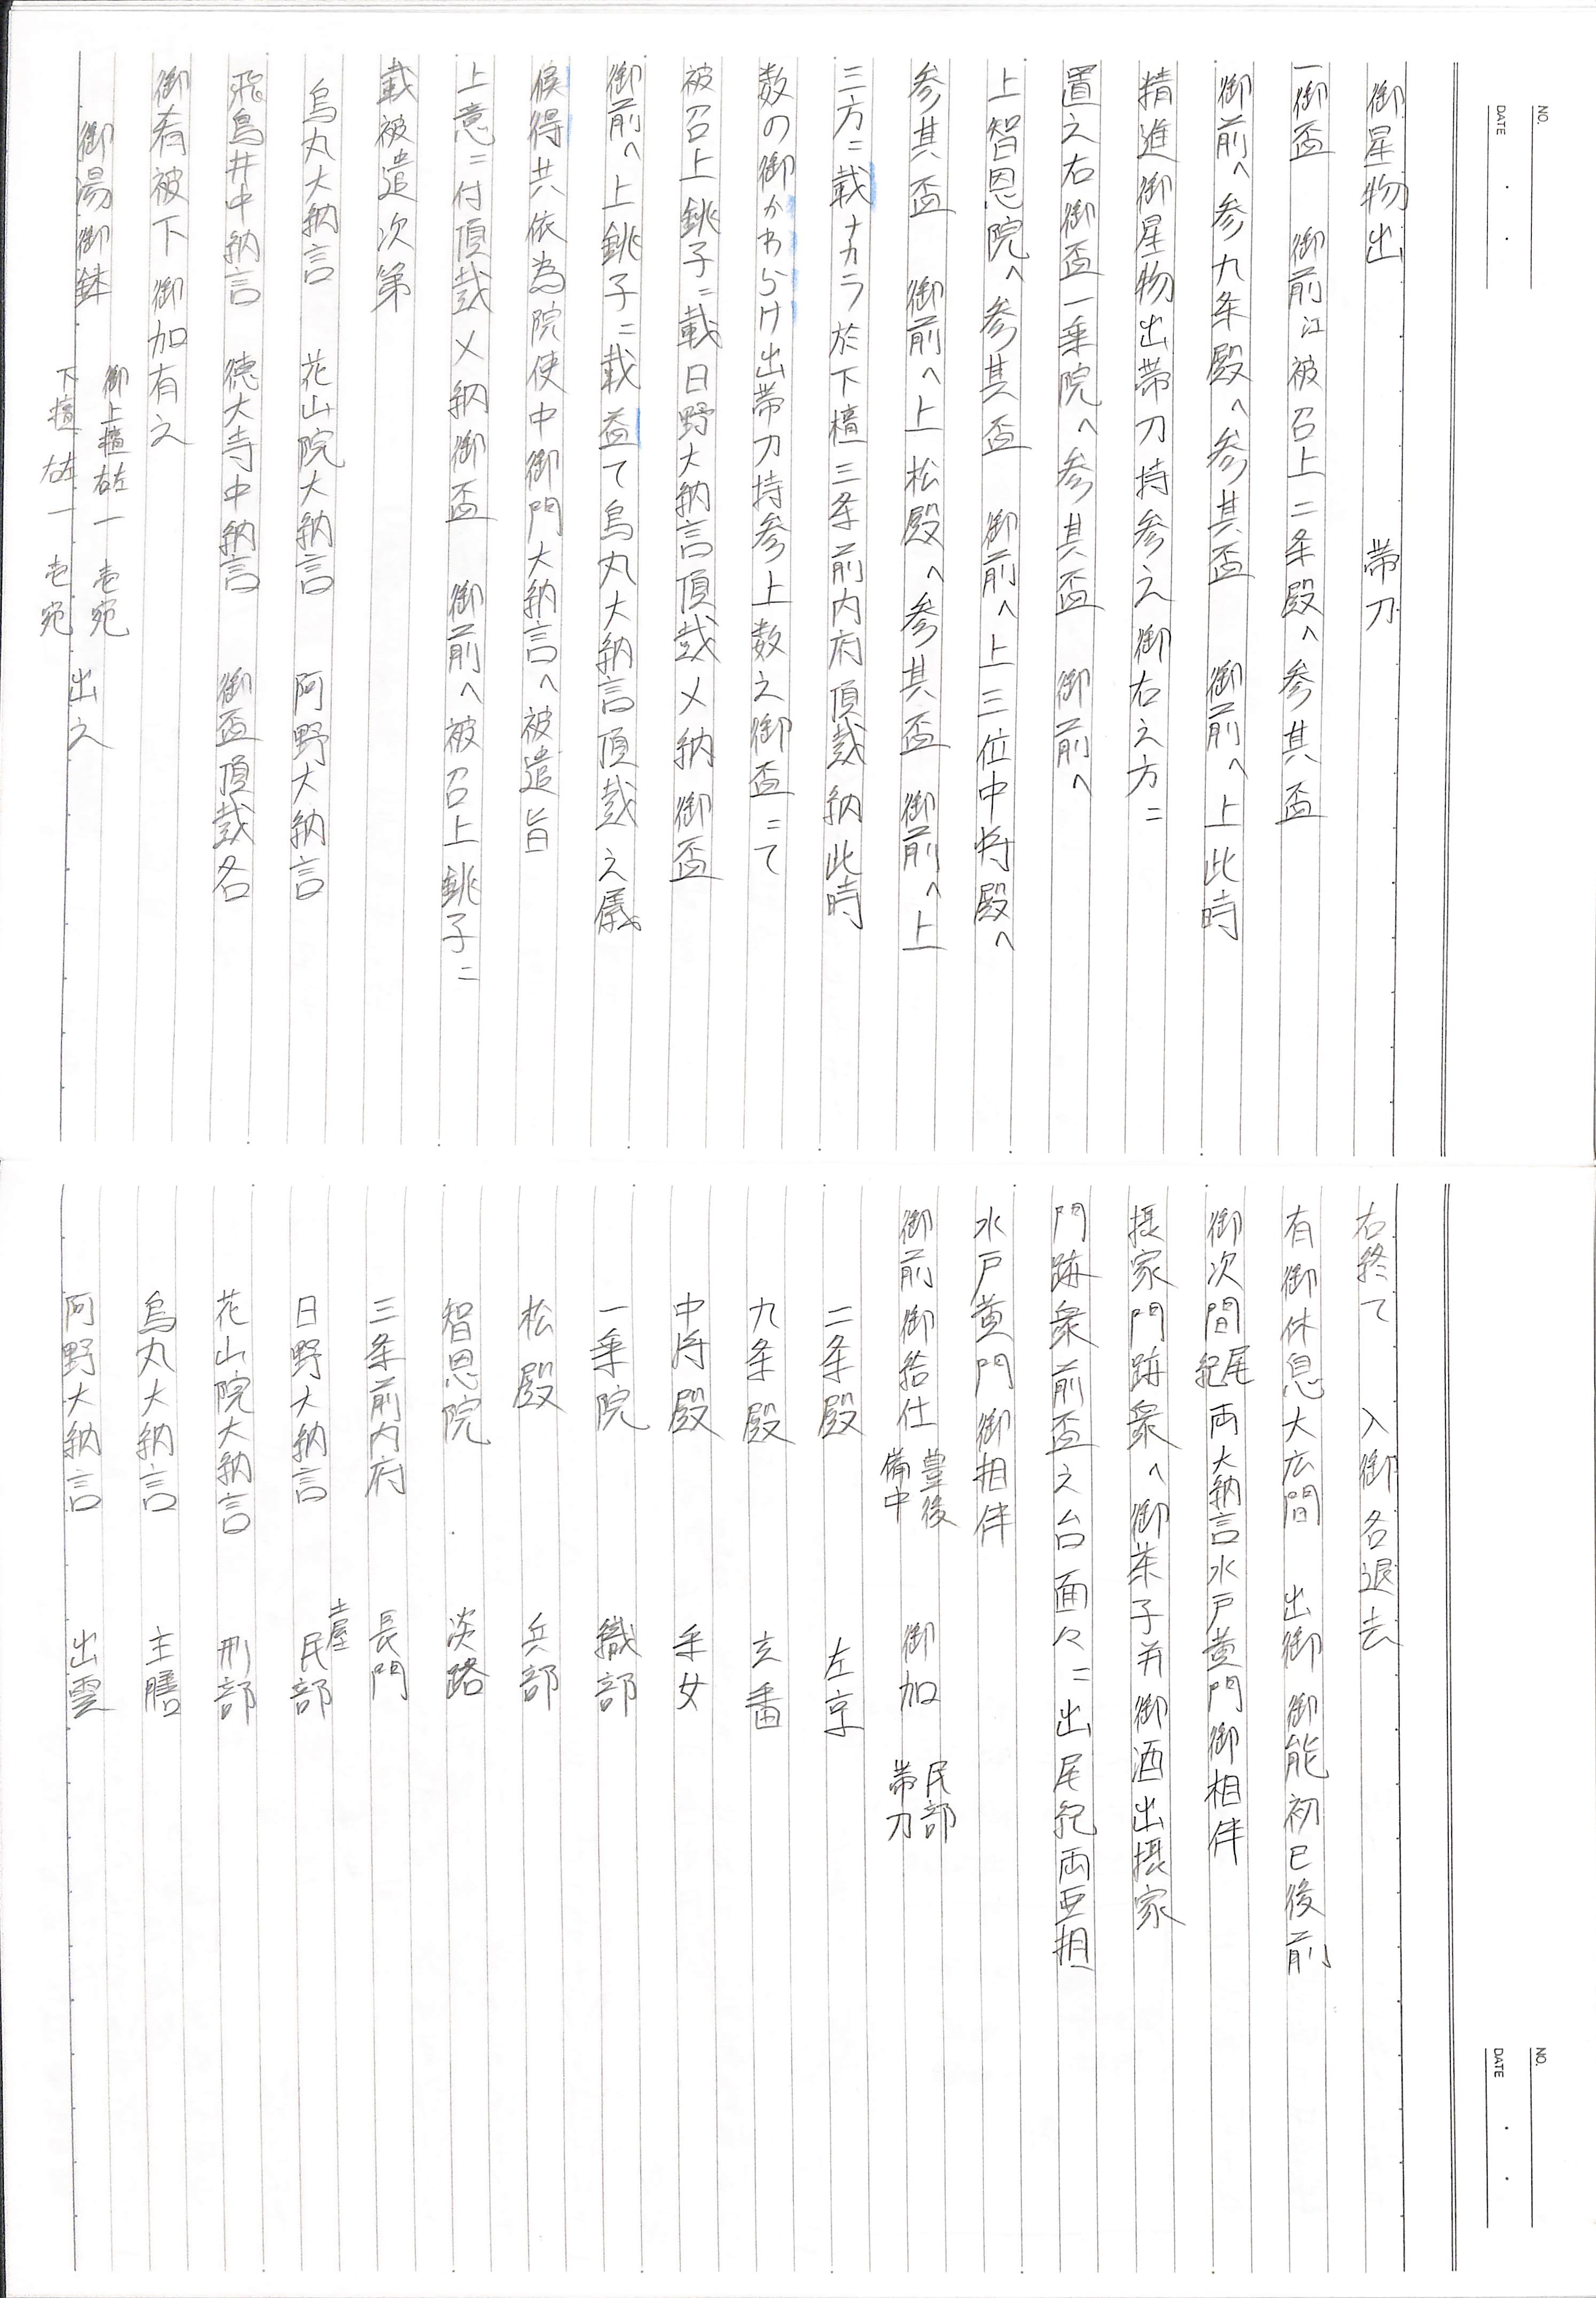 NO.
DATE
御星物出 帯刀
一御盃 御前江被召上二条殿へ参其盃
御前へ参九条殿へ参其盃 御前へ上此時
精進御星物出帯刀持参之御右之方ニ
置之右御盃一乗院へ参其盃 御前へ
上智恩院へ参其盃 御前へ上三位中将殿へ
参其盃 御前へ上松殿へ参其盃 御前へ上
三方ニ載ナカラ於下檀三条前内府頂戴納此時
数の御かわらけ出帯刀持参上数之御盃ニて
被召上銚子ニ載日野大納言頂戴〆納御盃
御前へ上銚子ニ載益て烏丸大納言頂戴之儀
候得共依為院使中御門大納言へ被遣旨
上意ニ付頂戴〆納御盃 御前へ被召上銚子ニ
載被遣次第
烏丸大納言 花山院大納言 阿野大納言
飛鳥井中納言 徳大寺中納言 御盃頂戴各
御肴被下御加有之
御湯御鉢 御上檀左右一 壱宛 下檀左右一 壱宛 出之
NO.
DATE
右終て 入御各退去
有御休息大広間 出御御能初已後前
御次間尾紀両大納言水戸黄門御相伴
摂家門跡衆へ御茶子并御酒出摂家
門跡衆前盃之台面々ニ出尾紀両亜相
水戸黄門御相伴
御前御給仕 豊後 備中 御加 民部 帯刀
二条殿 左京
九条殿 玄番
中将殿 采女
一乗院 織部
松殿 兵部
智恩院 淡路
三条前内府 長門
日野大納言 土屋民部
花山院大納言 刑部
烏丸大納言 主膳
阿野大納言 出雲